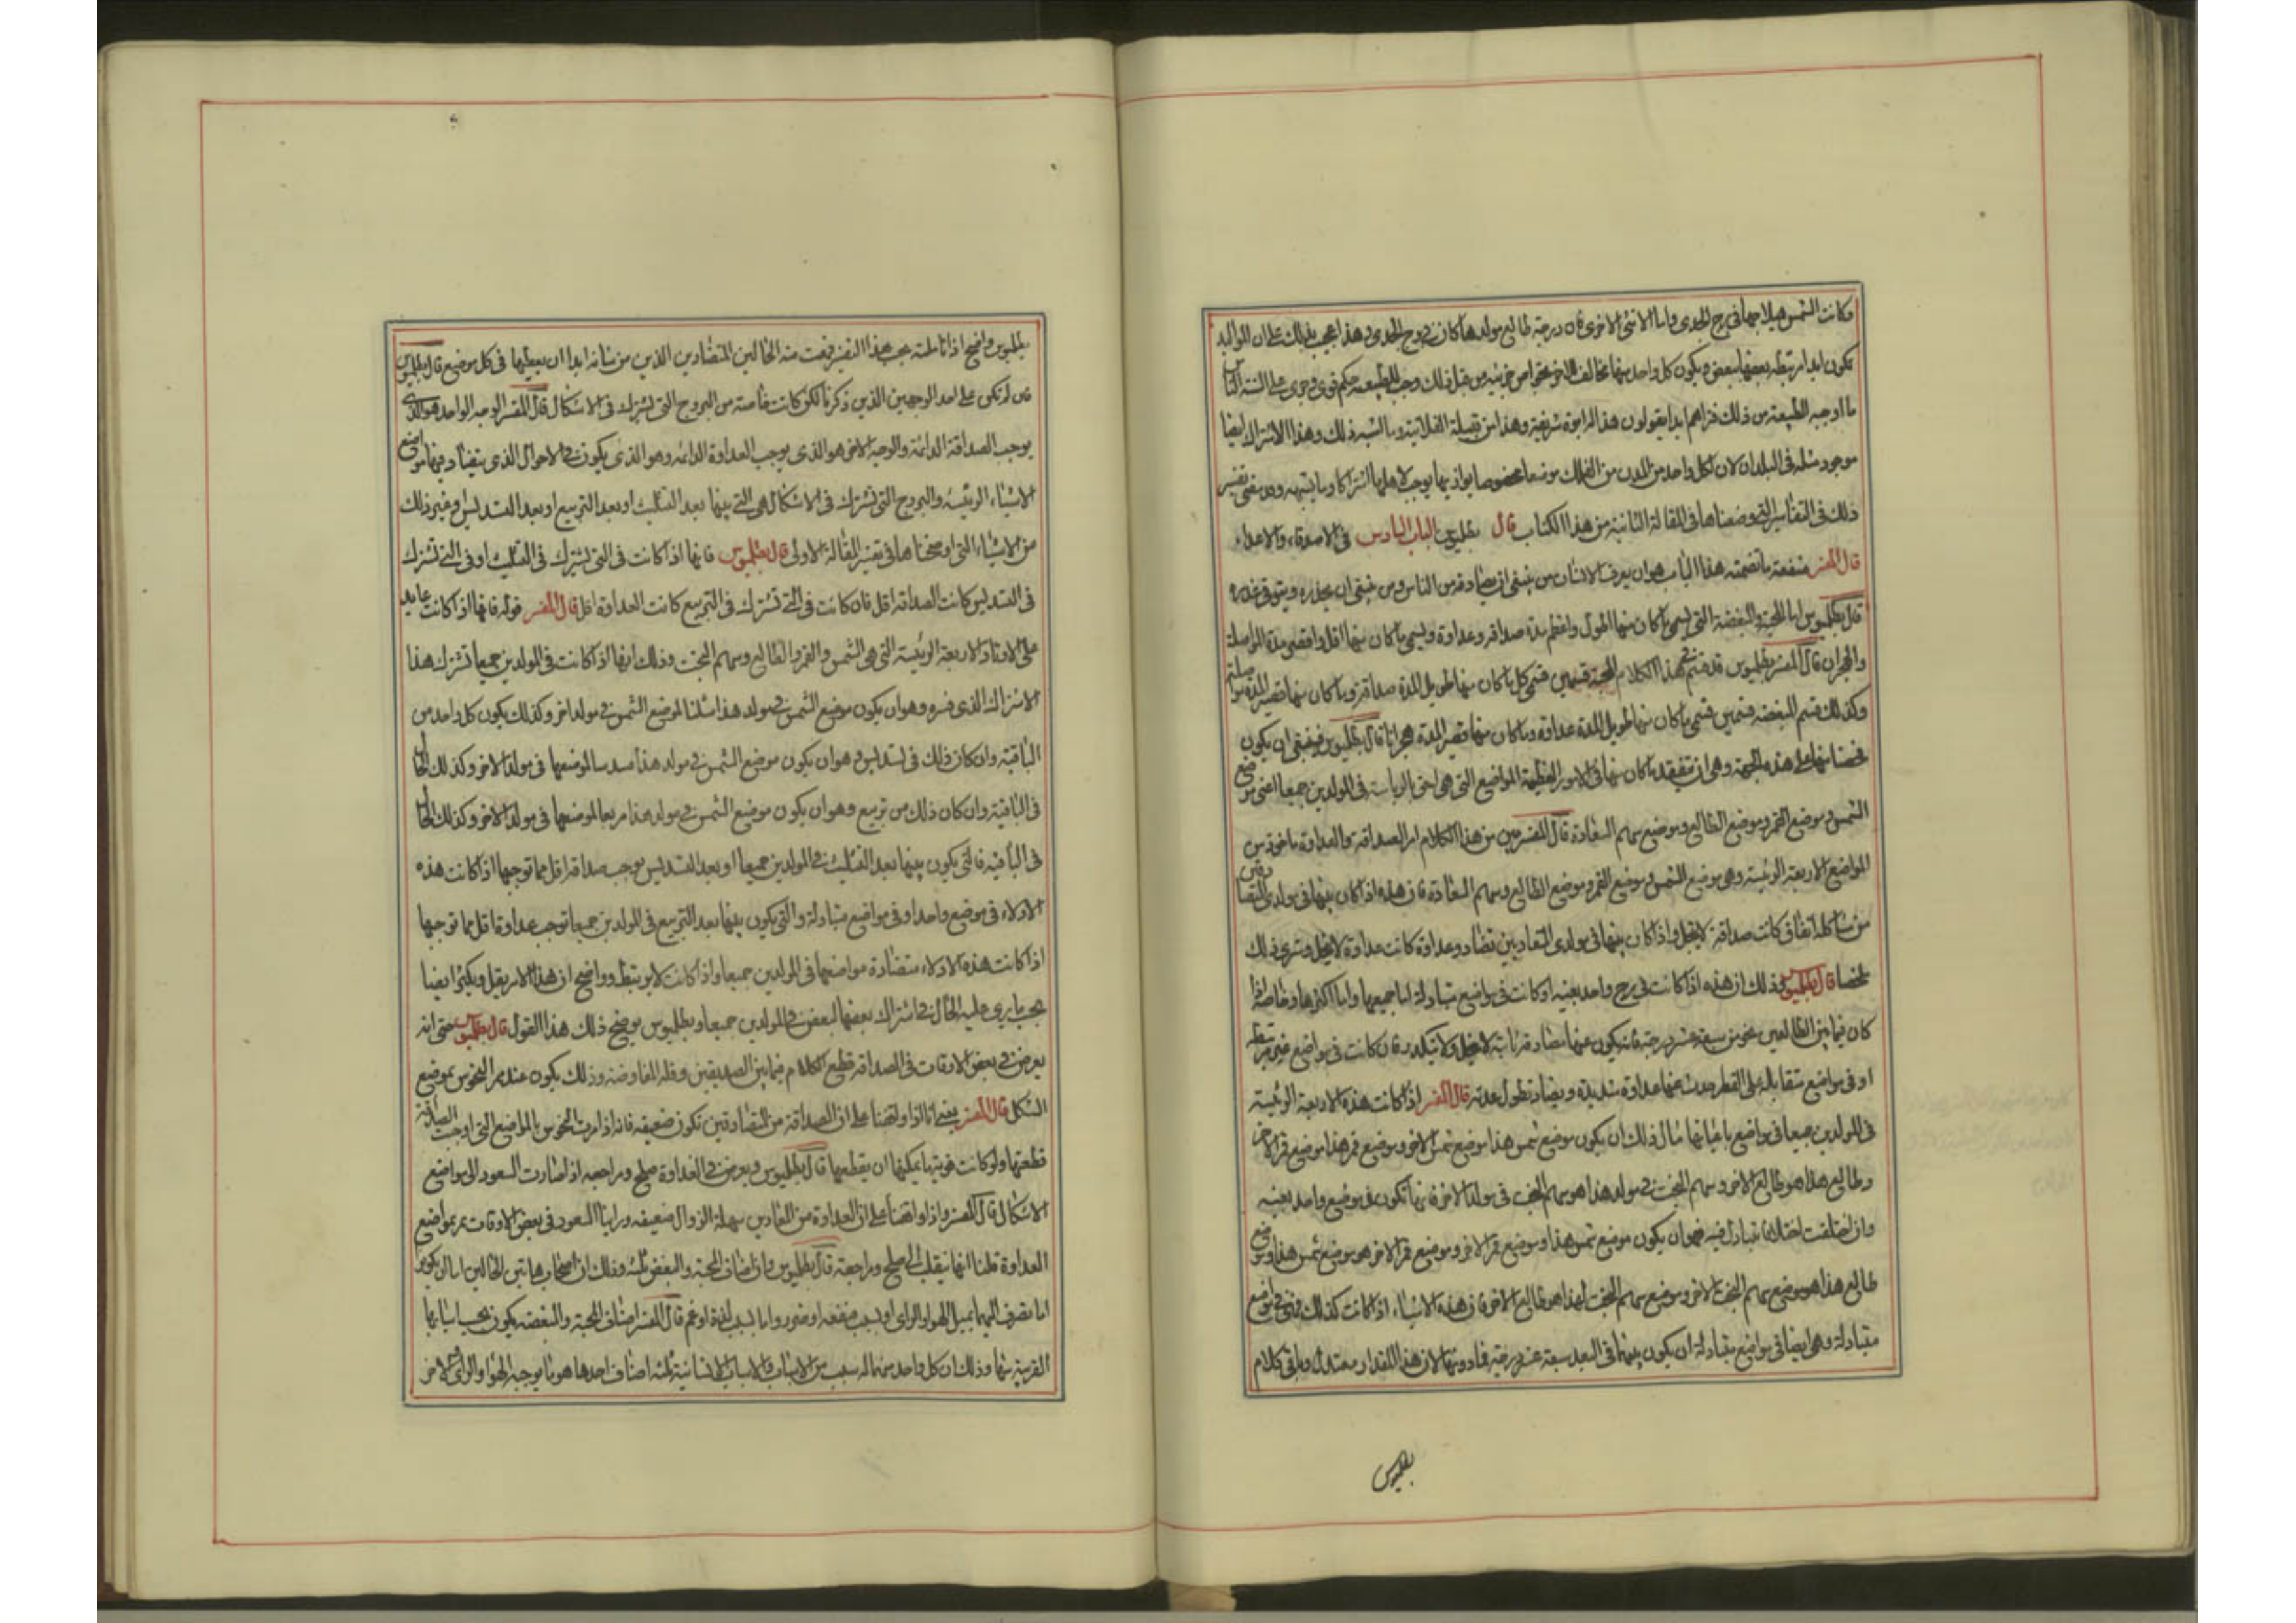 وكانت الشمس هيلاجها فى برج الجدى واما الانثى الاخرى فان درجة طالع مولدها كان فى برج الجدى وهذا عجيب يدلك على ان المواليد
تكون ابدا مرتبطه بعضها ببعض ويكون كل واحد منها مخالف الاخر بخواص جزئيه من قبل ذلك وجب للطبيعه حكم قوى وجرى على السنة الناس
ما اوجبه الطبيعة من ذلك فتراهم ابدا يقولون هذا لرابوة شريفة وهذا من قبيلة الفلانية وما اشبه ذلك وهذا الاشتراك ايضا
موجود مثله فى البلدان لان لكل واحد من المدن من الفلك موضعا مخصوصا يوازيها يوجب لاهلها اشتراكا وما يشبهه وقد مضى تفسير
ذلك فى التفاسير التى وضعناها فى المقالة الثانية من هذا الكتاب قال بطلميوس الباب السادس فى الاصدقاء والاعداء
قال المفسر منفعة ما تضمنه هذا الباب هو ان يعرف الانسان من ينبغى ان يصادقه من الناس ومن ينبغى ان يحذره ويتوقى غدره
قال بطلميوس اما المحبة والبغضة التى يسمى ما كان منها اطول واعظم مدة صداقه وعداوة ويسمى ما كان منها اقل واقصر مدة المواصلة
والهجران قال المفسر بطلميوس قد قسم فى هذا الكلام المحبة قسمين فسمى كل ما كان منها طويل المدة صداقة وما كان منها قصير المدة مواصلة
وكذلك قسم البغضه قسمين فسمى ما كان منها طويل المدة عداوة وما كان منها قصير المدة هجرانا قال بطلميوس فينبغى ان يكون
فحصنا عنها على هذه الجهة وهى ان نتفقد ما كان منها فى الامور العظيمة المواضع التى هى احق بالرياسة فى المولدين جميعا اعنى موضع
الشمس وموضع القمر وموضع الطالع وموضع سهم السعادة قال المفسر بين من هذا الكلام امر الصداقة والعداوة ماخوذ من
المواضع الاربعة الرئيسة وهى موضع الشمس وموضع القمر وموضع الطالع وسهم السعادة فان هذه اذا كان بينها فى مولدى المتصادقين
من مشاكلة اتفاق كانت صداقة لا تنحل واذا كان بينها فى مولدى المتعاديين تضاد وعداوة كانت عداوة لا تنحل وسترى ذلك
ملخصا قال بطلميوس وذلك ان هذه اذا كانت فى برج واحد بعينه او كانت فى مواضع متبادلة اما جميعها واما اكثرها وخاصة اذا
كان فيما بين الطالعين نحو من سبعة عشر درجة فانه يكون عنها مصادقة ثابتة لا تنحل ولا تتكدر وان كانت فى مواضع غير مرتبطه
او فى مواضع متقابلة على القطر حدث عنها عداوة شديدة ويضاد تطول مدته قال المفسر اذا كانت هذه الاربعة الرئيسة
فى المولدين جميعا فى مواضع باعيانها مثال ذلك ان يكون موضع شمس هذا موضع شمس الاخر وموضع قمر هذا موضع قمر الاخر
وطالع هذا هو طالع الاخر وسهم البخت فى مولد هذا هو سهم البخت فى مولد الاخر فانها تكون فى موضع واحد بعينه
وان اختلفت اختلافا تتبادل فيه فهو ان يكون موضع شمس هذا وموضع قمر الاخر وموضع قمر الاخر هو موضع شمس هذا وموضع
طالع هذا هو موضع سهم البخت الاخر وموضع سهم البخت لهذا هو طالع الاخر فان هذه الاشياء اذا كانت كذلك فهى فى مواضع
متبادلة وهى ايضا فى مواضع متبادلة ان يكون بينهما فى البعد سبعة عشر درجة فما دونها لان هذا المقدار معتدل وباقى كلام
بطلميوس
بطلميوس واضح اذا تاملته بحسب هذا التفسير فهمت منه الحالين المتضادين الذين من شانه ابدا ان يعطيها فى كل موضع قال بطلميوس
فان لم تكن على احد الوجهين الذين ذكرنا لكن كانت خاصته من البروج التى تشترك فى الاشكال قال المفسر الوجه الواحد هو الذى
يوجب الصداقة الدائمة والوجه الاخر هو الذى يوجب العداوة الدائمة وهو الذى يكون فى الاحوال الذى يتضاد فيها مواضع
الاشياء الرئيسة والبروج التى تشترك فى الاشكال هى التى بينها بعد التثليث او بعد التربيع او بعد التسديس وغير ذلك
من الاشياء التى اوضحناها فى تفسير المقالة الاولى قال بطلميوس فانها اذا كانت فى التى تشترك فى التثليث او فى التى تشترك
فى التسديس كانت الصداقة اقل فان كانت فى التى تشترك فى التربيع كانت العداوة اقل قال المفسر قوله فانها اذا كانت عايد
على الاوتاد الاربعة الرئيسة التى هى الشمس والقمر والطالع وسهم البخت وذلك انها اذا كانت فى المولدين جميعا تشترك هذا
الاشتراك الذى فسره وهو ان يكون موضع الشمس فى مولد هذا مثلثا لموضع الشمس فى مولد اخر وكذلك يكون كل واحد من
الباقية وان كان ذلك فى تسديس وهو ان يكون موضع الشمس فى مولد هذا مسدسا لموضعها فى مولد الاخر وكذلك الحال
فى الباقية وان كان ذلك من تربيع وهو ان يكون موضع الشمس فى مولد هذا مربعا لموضعها فى مولد الاخر وكذلك الحال
فى الباقية فالتى يكون بينها بعد التثليث فى المولدين جميعا او بعد التسديس يوجب صداقة اقل مما توجبها اذا كانت هذه
الاولاء فى موضع واحد او فى مواضع متبادلة والتى يكون بينها بعد التربيع فى المولدين جميعا توجب عداوة اقل مما توجبها
اذا كانت هذه الاولاء متضادة مواضعها فى المولدين جميعا واذا كانت لا يرتبط وواضح ان هذا الامر يقل ويكثر ايضا
بحسب ما يرى عليه الحال فى اشتراك بعضها لبعض فى المولدين جميعا وبطلميوس يوضح ذلك هذا القول قال بطلميوس حتى انه
يعرض فى بعض الاوقات فى الصداقة قطع الكلام فيما بين الصديقين وقله المفاوضه وذلك يكون عند ممر النحوس بموضع
الشكل قال المفسر يعنى انا اذا وقفنا على ان الصداقة من المتصادقين تكون ضعيفه فانه اذا مرت النحوس بالمواضع التى اوجبت الصداقة
قطعتها ولو كانت قوية ما يمكنها ان يقطعها قال بطلميوس ويعرض فى العداوة صلح ومراجعه اذا صارت السعود الى مواضع
الاشكال قال المفسر واذا وقفنا على ان العداوة من المتعادين سهلة الزوال ضعيفه وراينا السعود فى بعض الاوقات تمر بمواضع
العداوة قلنا انها تنقلب الى صلح ومراجعة قال بطلميوس فان اصناف المحبة والبغض ثلثه وذلك ان اصحاب هاتين الحالين اما ان يكون
انما تصرف اليهما بميل الهوا والراى او بسبب منفعه او ضرر واما بسبب لذة او غم قال المفسر اصناف المحبة والبغضه يكون بحسب اسبابها
القريبة منها وذلك ان كل واحد منهما له سبب من الاسباب والاسباب الانسانية ثلثه اصناف احدها هو ما يوجبه الهوا والراى الاخر